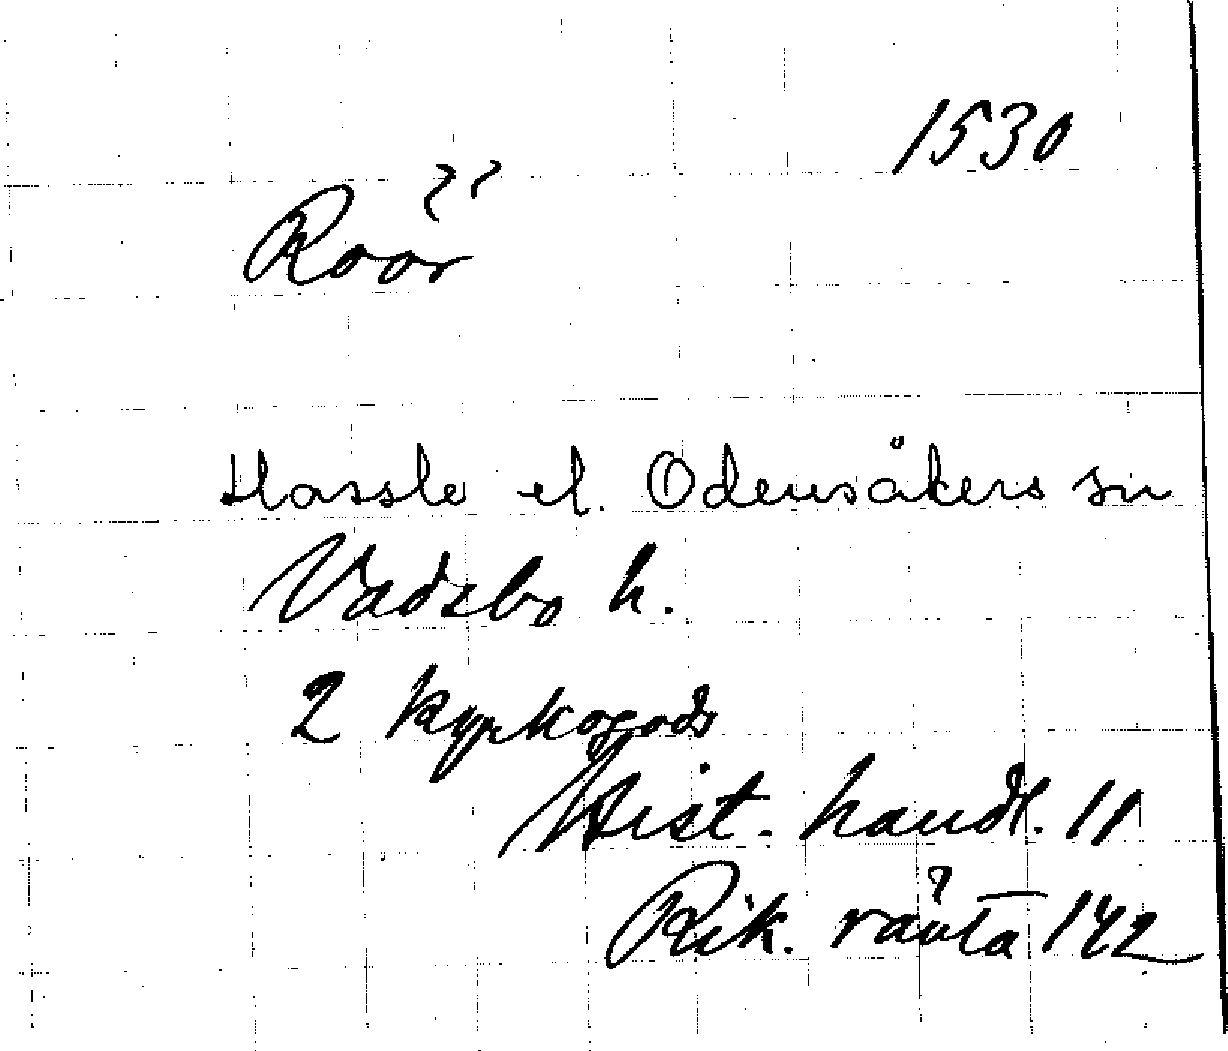 1530
Roör
Hassle el. Odensåkers sn
Vadsbo h.
2 kyrkogods
Hist. handl. 11
Rik. ränta 142